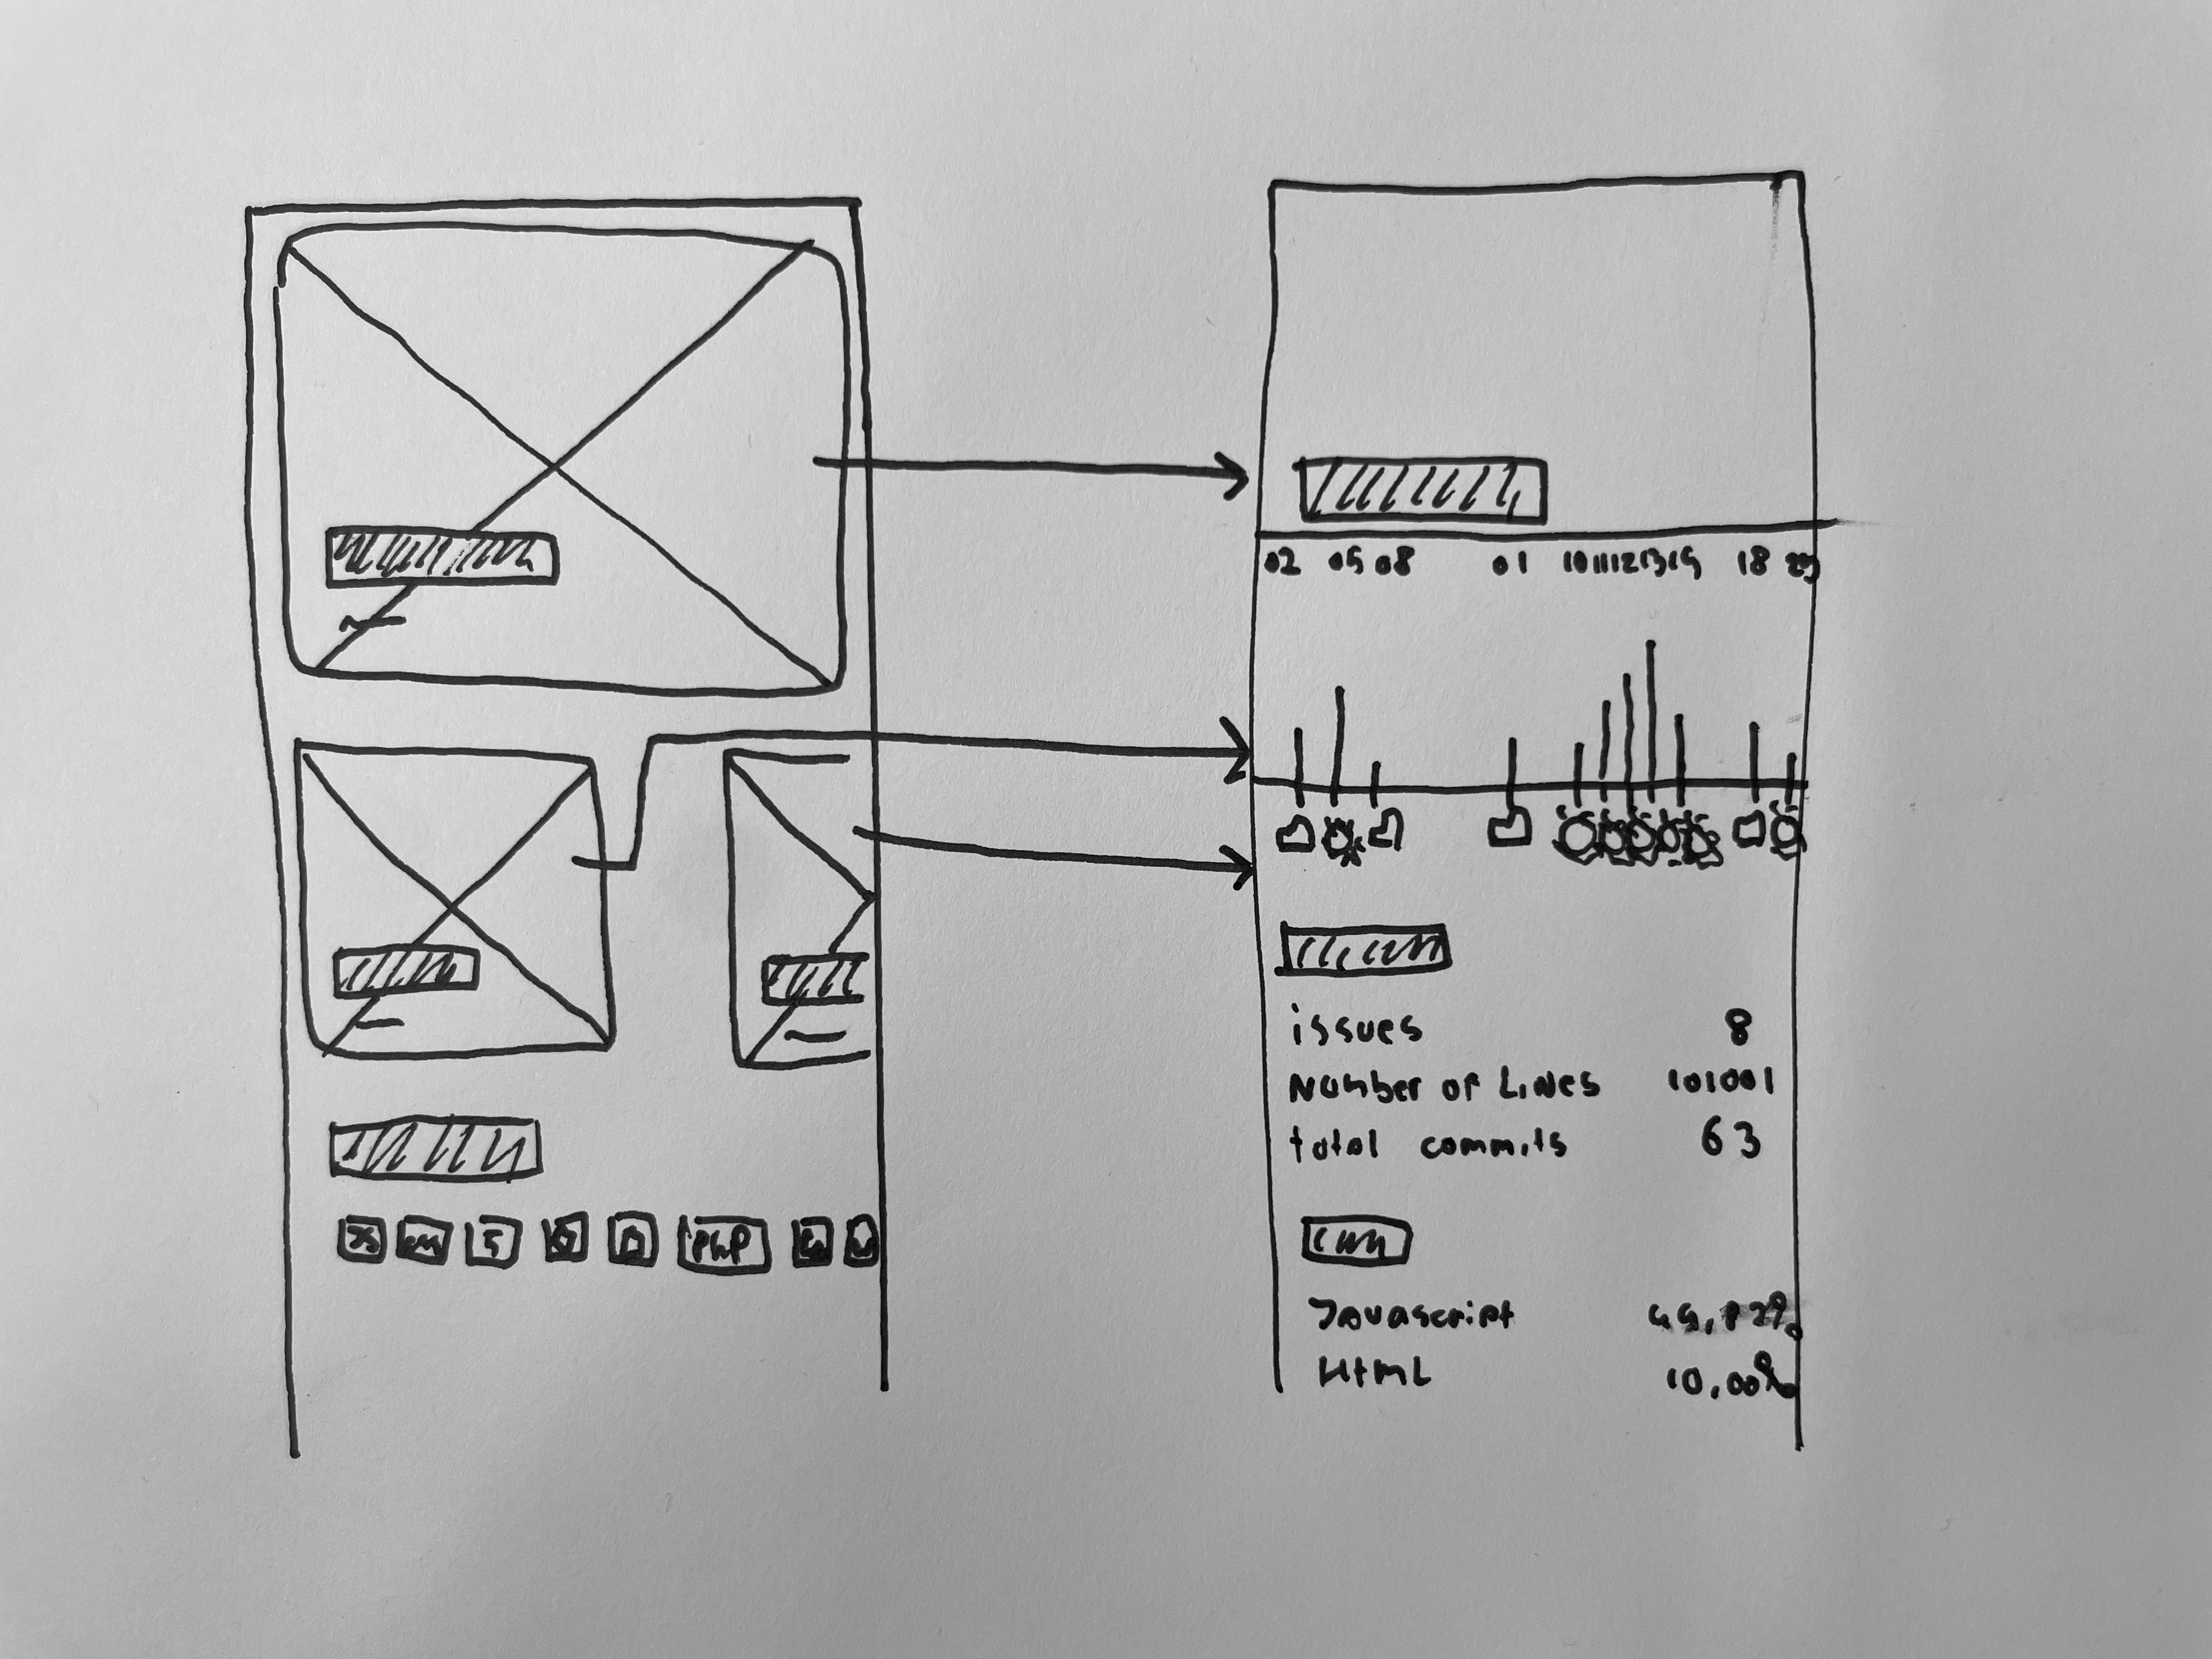 02 05 08 01 10 11 12 13 15 18
issues 8
Number of Lines 101001
total commits 63
Javascript
HTML 10,00%
PHP